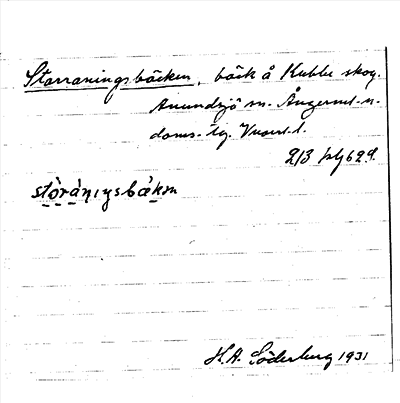 Storraningsbäcken, bäck å Kubbe skog.
Anundsjö sn. Ångerml. n.
doms. tg. Vnorrl. l.
213
störånıŋsbäkən
H.A. Söderberg 1931